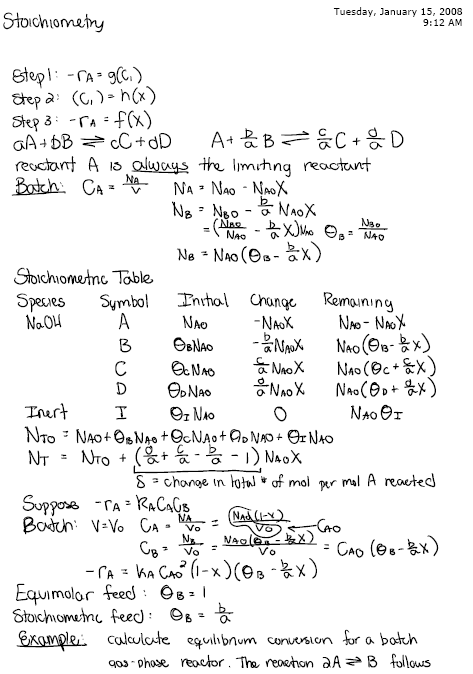 Tuesday, January 15, 2008
9:12 AM
Stoichiometry
Step 1: -rA = g(Ci)
Step 2: (Ci) = h(x)
Step 3: -rA = f(x)
aA + bB ⇌ cC + dD    A + b/a B ⇌ c/a C + d/a D
reactant A is always the limiting reactant
Batch: CA = NA/V    NA = NAO - NAOX
NB = NBO - b/a NAOX
= (NBO/NAO - b/a X)NAO    ΘB = NBO/NAO
NB = NAO(ΘB - b/a X)
Stoichiometric Table
Species    Symbol    Initial    Change    Remaining
NaOH    A    NAO    -NAOX    NAO - NAOX
B    ΘBNAO    -b/a NAOX    NAO(ΘB - b/a X)
C    ΘCNAO    c/a NAOX    NAO(ΘC + c/a X)
D    ΘDNAO    d/a NAOX    NAO(ΘD + d/a X)
Inert    I    ΘI NAO    0    NAO ΘI
NTO = NAO + ΘB NAO + ΘC NAO + ΘD NAO + ΘI NAO
NT = NTO + (d/a + c/a - b/a - 1) NAOX
δ = change in total # of mol per mol A reacted
Suppose -rA = kACACB
Batch: V=V0    CA = NA/V0 = NAO(1-x)/V0 ← CAO
CB = NB/V0 = NAO(ΘB - b/a X)/V0 = CAO (ΘB - b/a X)
-rA = kA CAO² (1-x)(ΘB - b/a X)
Equimolar feed: ΘB = 1
Stoichiometric feed: ΘB = b/a
Example: calculate equilibrium conversion for a batch
gas-phase reactor. The reaction 2A ⇌ B follows